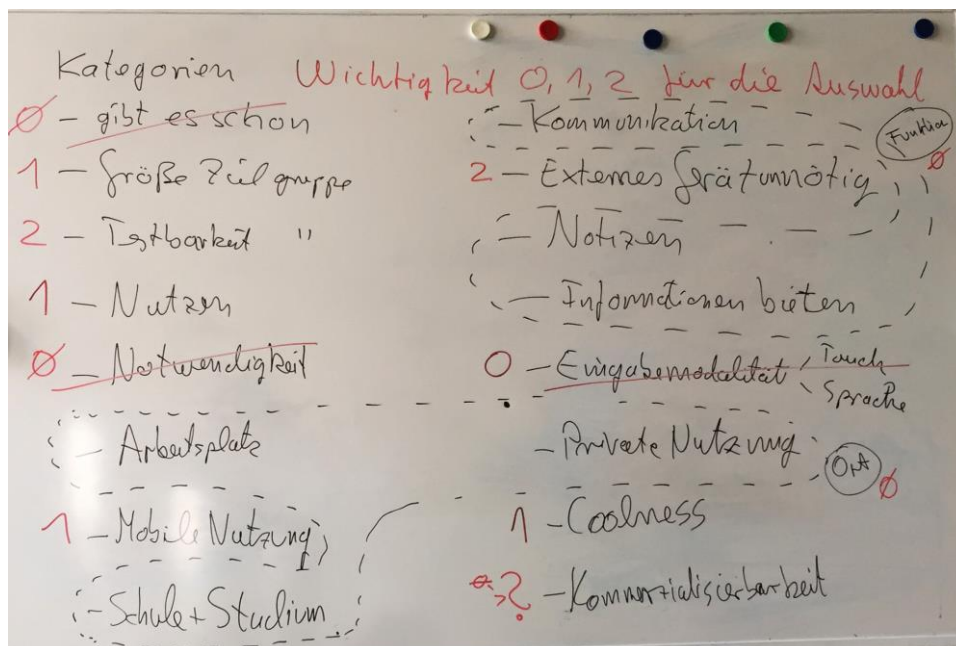 Kategorien Wichtigkeit 0, 1, 2 für die Auswahl
0 - gibt es schon
1 - Größe Zielgruppe
2 - Testbarkeit "
1 - Nutzen
0 - Notwendigkeit
- Arbeitsplatz
1 - Mobile Nutzung
- Schule + Studium
- Kommunikation
Funktion
0
2 - Externes Gerät unnötig
- Notizen
- Informationen bieten
0 - Eingabemodalität Touch
Sprache
- Private Nutzung
Ort
0
1 - Coolness
? - Kommerzialisierbarkeit